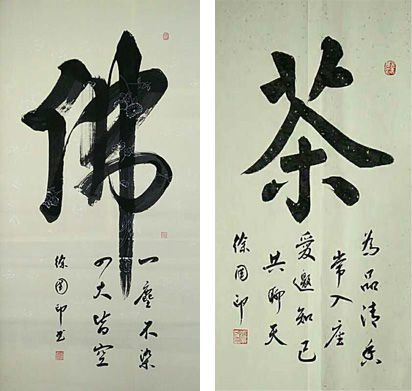 佛
一塵不染
四大皆空
徐国印书
茶
為品清香
常入座
愛邀知己
共聊天
徐国印